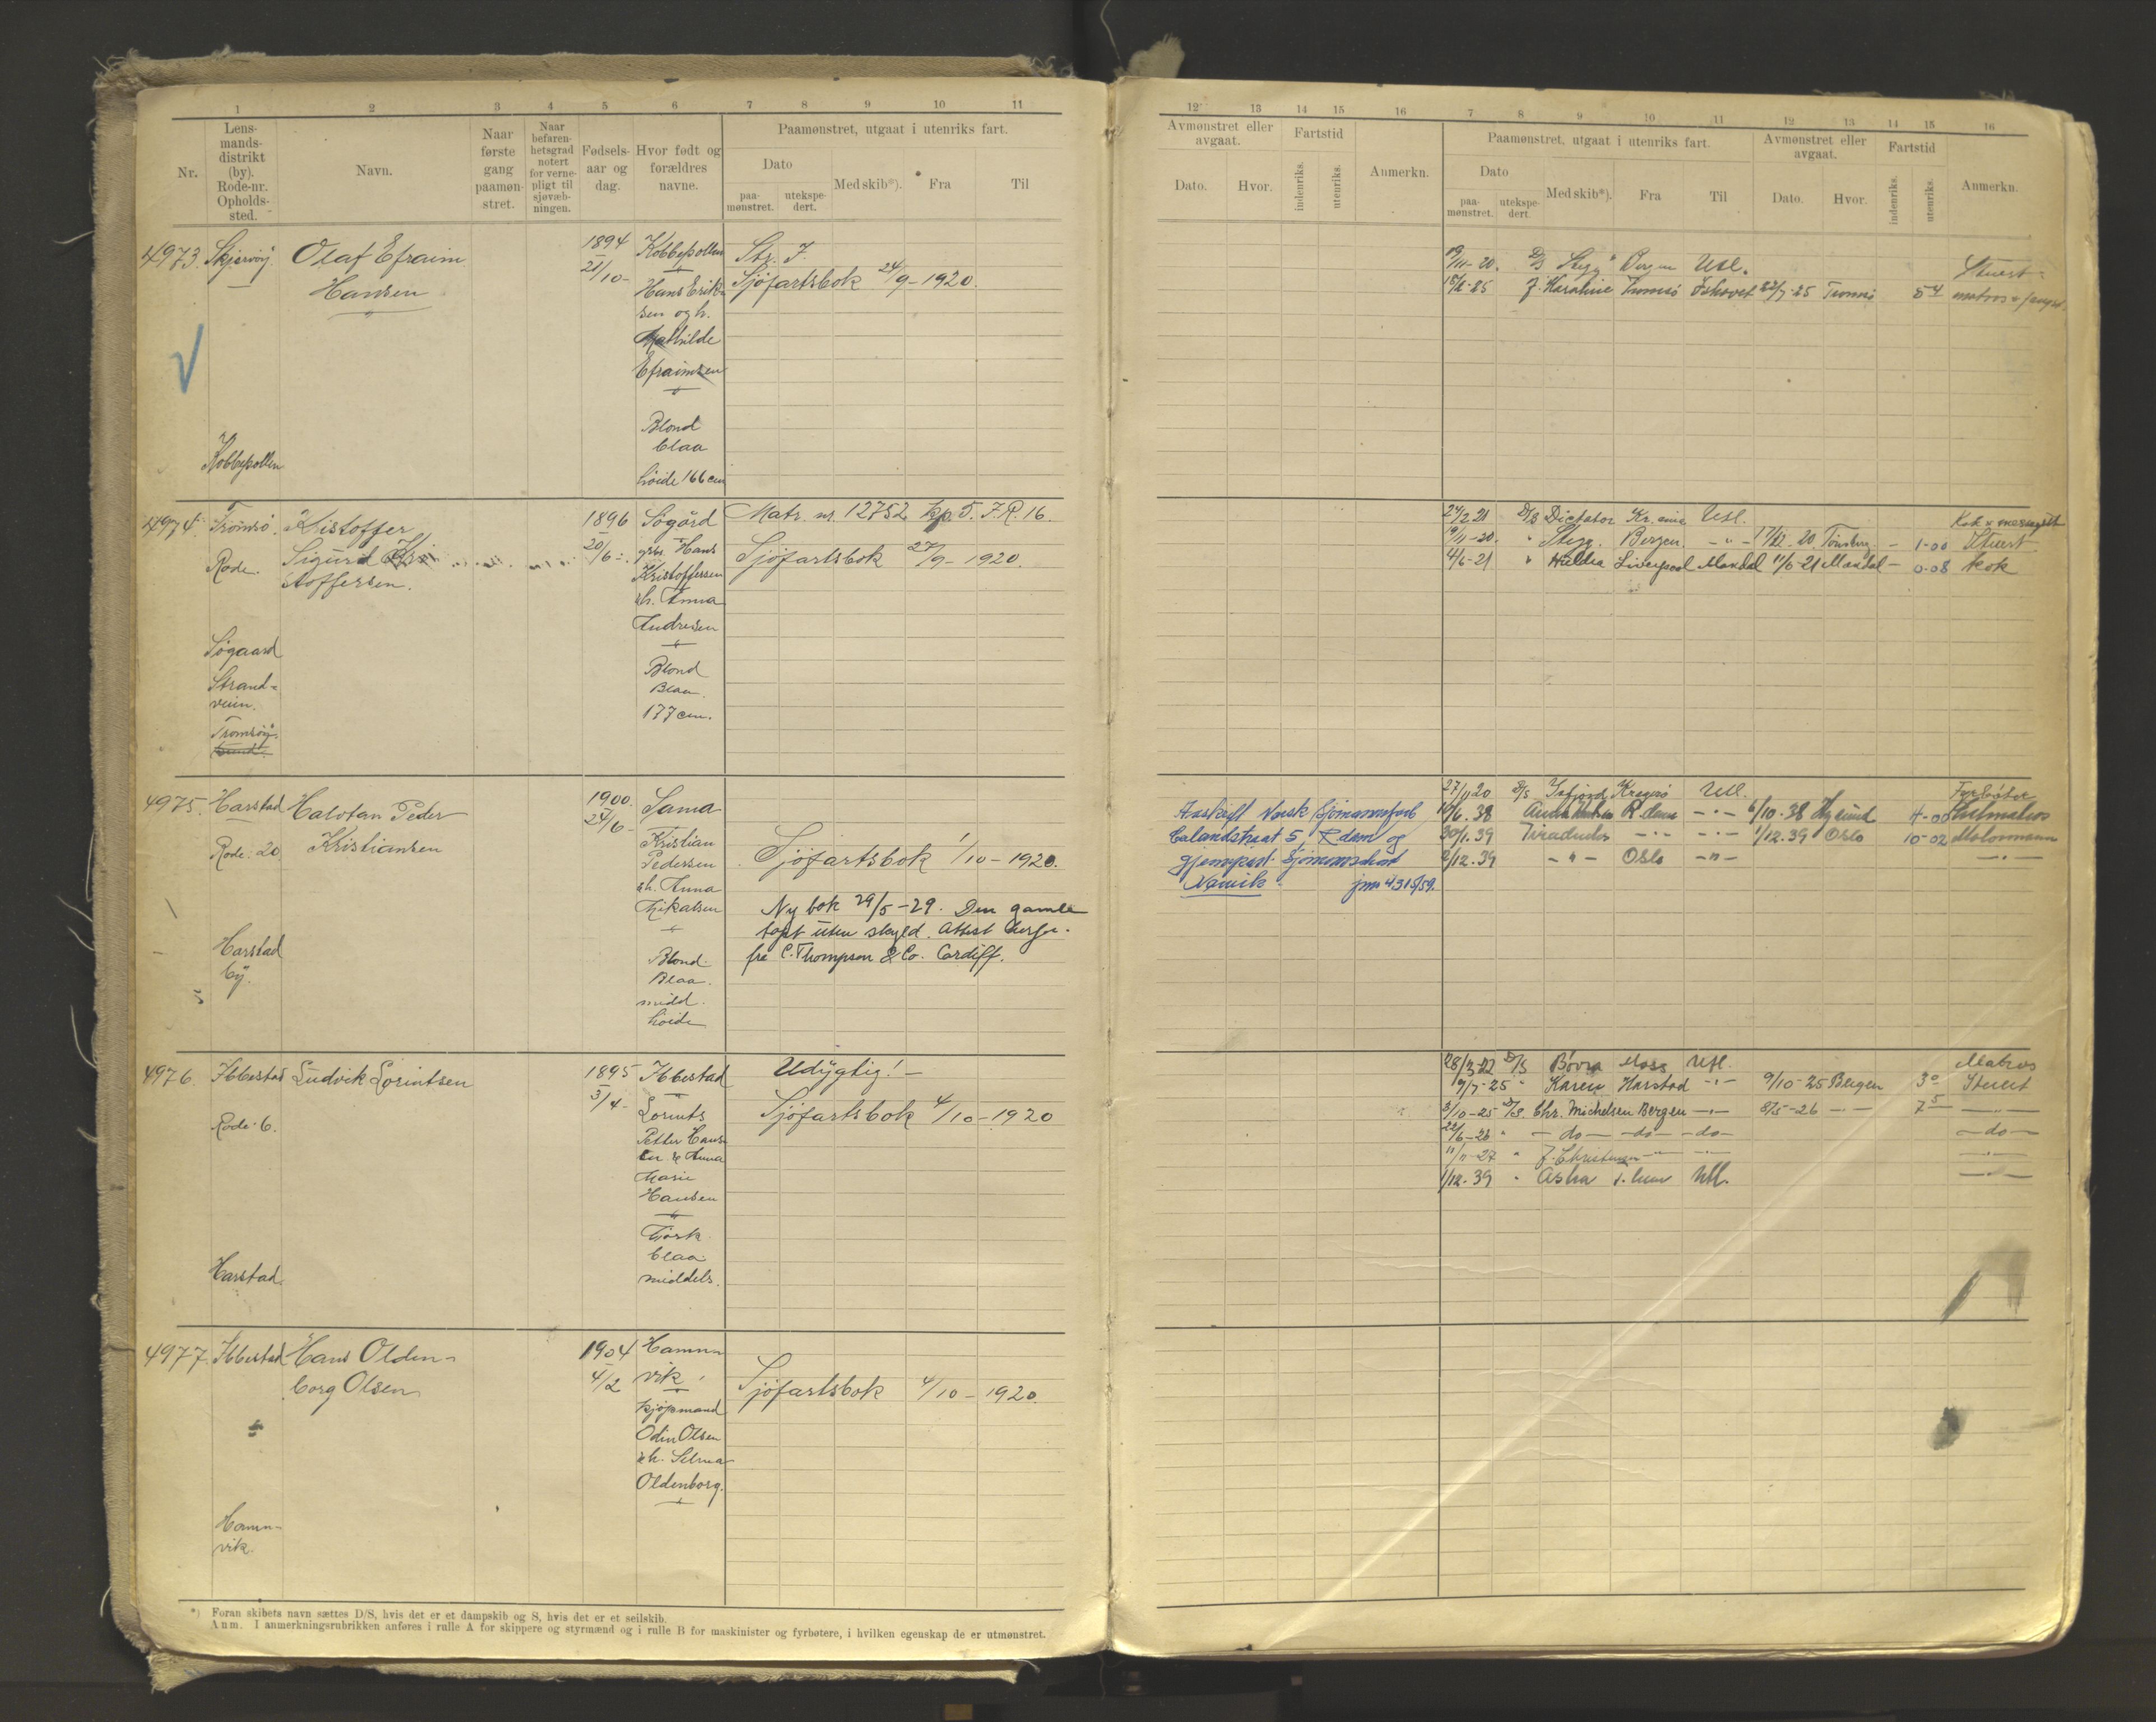 1 2 3 4 5 6 7 8 9 10 11
Nr.
Lens-
mands-
distrikt
(by).
Rode-nr.
Opholds-
sted.
Navn.
Naar
første
gang
paamøn-
stret.
Naar
befaren-
hetsgrad
notert
for verne-
pligt til
sjøvæb-
ningen.
Fødsels-
aar og
dag.
Hvor født og
forældres
navne.
Paamønstret, utgaat i utenriks fart.
Dato
paa-
mønstret.
utekspe-
dert.
Med skib*).
Fra
Til
4973. Skjervöy. Olaf Efraim
Hansen
1894
21/10-
Kobbepollen
Hans Erik-
sen og h.
Mathilde
Efraimsen
Blond
blaa
höide 166 cm
Str. I.
Sjöfartsbok 24/9-1920.
Kobbepollen
4974. Tromsö. Kristoffer
Rode. Sigurd Kri
stoffersen.
1896
20/6-
Sögård
Hans
Kristoffersen
h. Anna
Andresen
Blond
Blaa.
177 cm.
Matr. nr. 12752 kp. 5. I.R. 16.
Sjöfartsbok 27/9-1920.
Sögaard
Strand-
veien.
Tromsöy-
sund.
4975. Harstad Halvdan Peder
Rode. 20 Kristiansen
1900.
24/6-
Sama
Kristian
Pedersen
h. Anna
Mikalsen
Blond.
Blaa.
midd.
höide
Sjöfartsbok 1/10-1920.
Ny bok 29/5-29. Den gamle
tapt uten skyld. Attest
fra C. Thompson & Co. Cardiff.
Harstad
by.
4976. Ibbestad Ludvik Lorintsen
Rode 6.
1895
3/4-
Ibbestad
Lorints
Petter Han-
sen & Anna
Marie
Hansen
mörk
blaa
middels.
Udygtig!-
Sjöfartsbok 4/10-1920
Harstad.
4977. Ibbestad Hans Olden-
borg Olsen
1904
4/2
Hamn-
vik
kjöpmand
Odin Olsen
h. Selma
Oldenborg.
Sjöfartsbok 4/10-1920.
Hamn-
vik.
*) Foran skibets navn sættes D/S, hvis det er et dampskib og S, hvis det er et seilskib.
Anm. I anmerkningsrubrikken anføres i rulle A for skippere og styrmænd og i rulle B for maskinister og fyrbøtere, i hvilken egenskap de er utmønstret.
12 13 14 15 16 7 8 9 10 11 12 13 14 15 16
Avmønstret eller
avgaat.
Dato.
Hvor.
Fartstid
indenriks.
utenriks.
Anmerkn.
Paamønstret, utgaat i utenriks fart.
Dato
paa-
mønstret.
utekspe-
dert.
Med skib*).
Fra
Til
Avmønstret eller
avgaat.
Dato.
Hvor.
Fartstid
indenriks.
utenriks.
Anmerkn.
19/11-20. D/S Stegg Bergen Utl. Stuert
18/6-25 Karoline Tromsö Ishavet 22/7-25 Tromsö 5 4 matros
24/2 21 D/S Dictator Kr.ania Utl. Kok
19/11-20. " Stegg. Bergen. -"- 17/12 20 Tönsberg - 1-00 Stuert
4/6-21 " Hildea Liverpool Mandal 11/6-21 Mandal - 0-08 kok
27/11 20 D/S Isfjord Kragerö Utl. Fyrböter
Avskrift Norsk Sjömannsforb /6.38 R.dam -"- 6/10.38 4-00
Calandstraat 5, R.dam og 30/1.39 -"- -"- 1/12.39 Oslo 10-02 Motormann
gjenpart 2/12.39 -"- Oslo -"- -"-
Narvik. jnr 4315/59.
28/3-22 D/S Moss Utl. Matros
9/7-25 " Karen Harstad -"- 9/10-25 Bergen 3 0 Stuert
3/10-25 D/S. Chr. Michelsen Bergen -"- 8/5-26 -"- 7 5 -"-
22/6-26 " -do- -do- -do- -do-
11/11-27 " -"- -"- -"-
1/12.39 " Utl. -"-